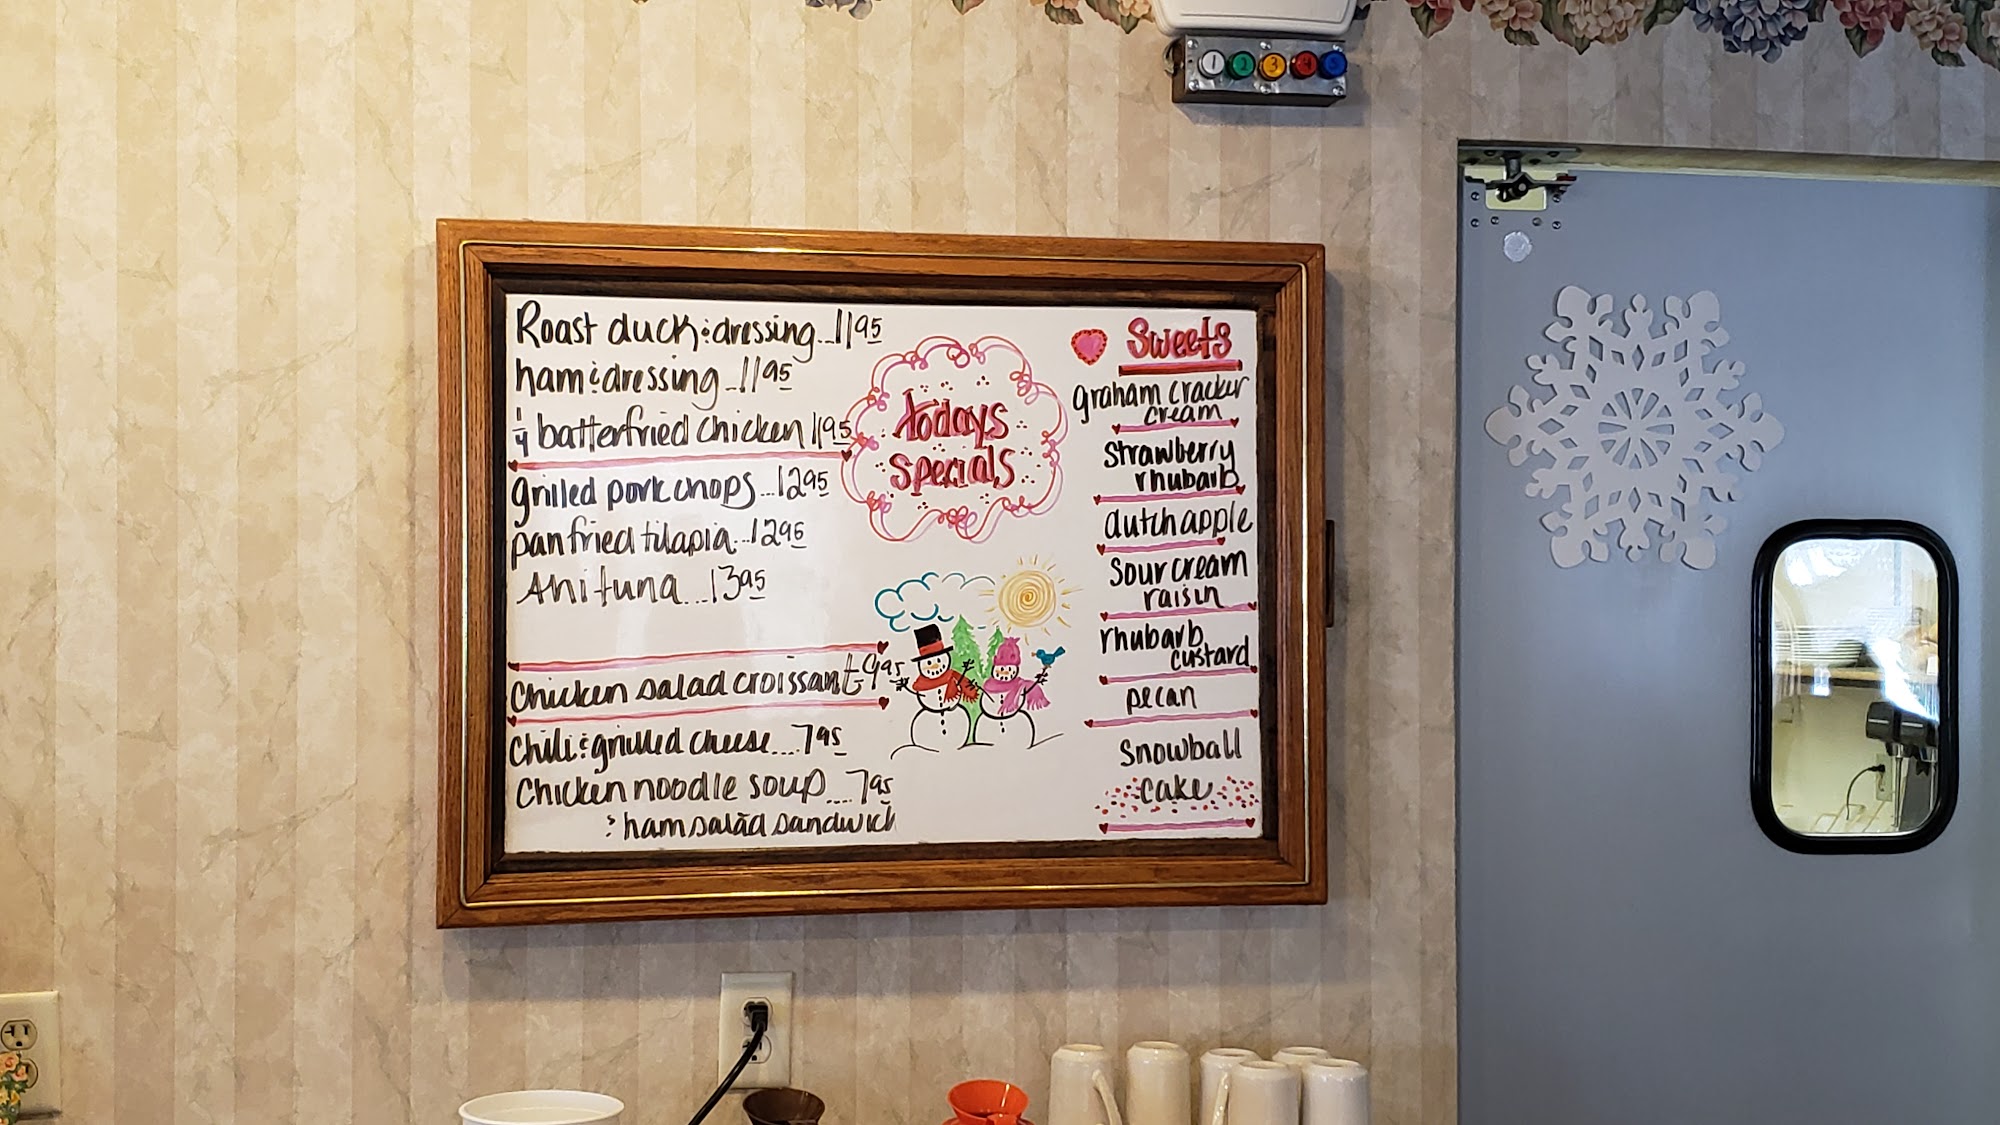 1 2 3 4 5
Roast duck & dressing...11.95
ham & dressing...11.95
1/4 batterfried chicken 11.95
grilled pork chops...12.95
pan fried tilapia...12.95
Ahi tuna...13.95
Chicken salad croissant-9.95
Chili & grilled cheese....7.95
Chicken noodle soup....7.95
& ham salad sandwich
todays
specials
Sweets
graham cracker
cream
strawberry
rhubarb
dutch apple
Sour cream
raisin
rhubarb
custard
pecan
Snowball
cake